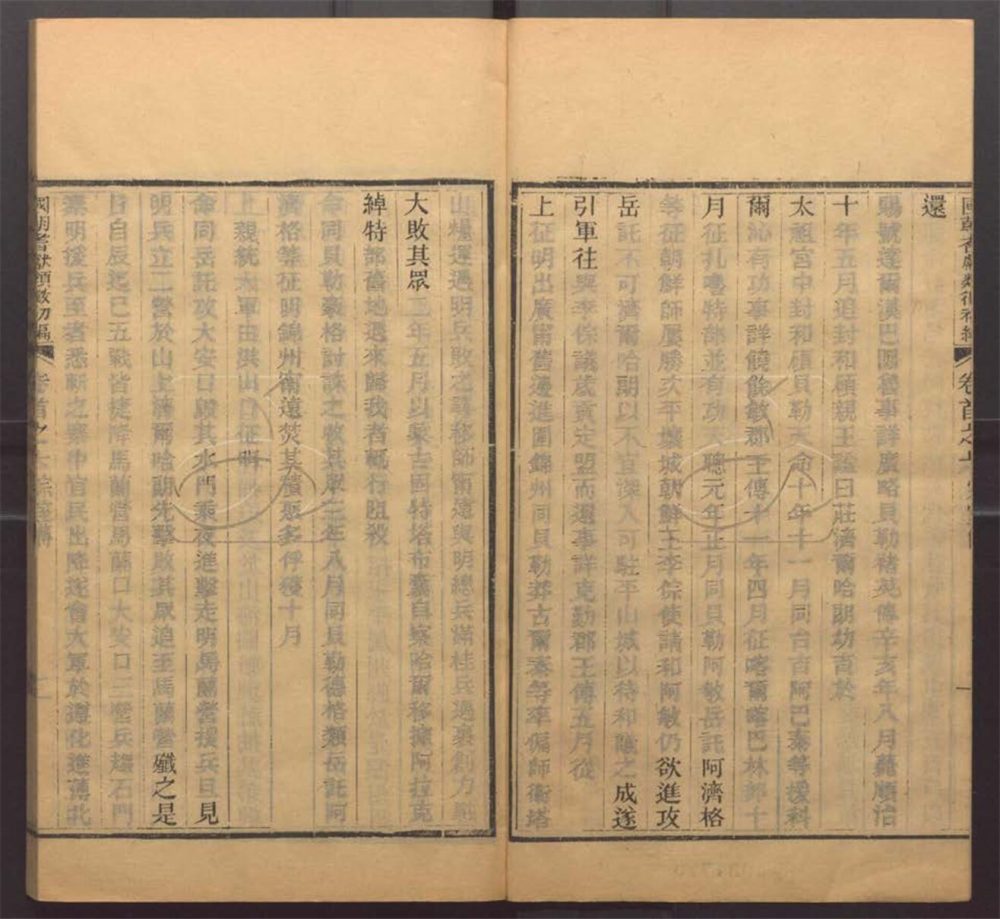 還
賜號達爾漢巴圖魯事詳廣略貝勒褚英傳辛亥年八月薨順治
十年五月追封和碩親王諡曰莊濟爾哈朗幼育於
太祖宮中封和碩貝勒天命十年十一月同台吉阿巴泰等援科
爾沁有功事詳饒餘敏郡王傳十一年四月征喀爾喀巴林部十
月征扎嚕特部並有功天聰元年正月同貝勒阿敏岳託阿濟格
等征朝鮮師屢勝次平壤城朝鮮王李倧使請和阿敏仍欲進攻
岳託不可濟爾哈朗以不宜深入可駐平山城以待和議之成遂
引軍往與李倧議歲貢定盟而還事詳克勤郡王傳五月從
上征明出廣甯舊邊進圍錦州同貝勒莽古爾泰等率偏師衞塔
山糧運遇明兵敗之尋移師甯遠與明總兵滿桂兵遇裹創力戰
大敗其眾二年五月以蒙古固特塔布囊自察哈爾移據阿拉克
綽特部舊地遇來歸我者輒行阻殺
命同貝勒豪格討誅之收其眾三年八月同貝勒德格類岳託阿
濟格等征明錦州甯遠焚其積聚多俘穫十月
上親統大軍由洪山口征明
命同岳託攻大安口毀其水門乘夜進擊走明馬蘭營援兵旦見
明兵立二營於山上濟爾哈朗先擊敗其眾追至馬蘭營殲之是
日自辰迄巳五戰皆捷降馬蘭營馬蘭口大安口三營兵趨石門
寨明援兵至者悉斬之寨中官民出降遂會大軍於遵化進薄北
國朝耆獻類徵初編
卷首之